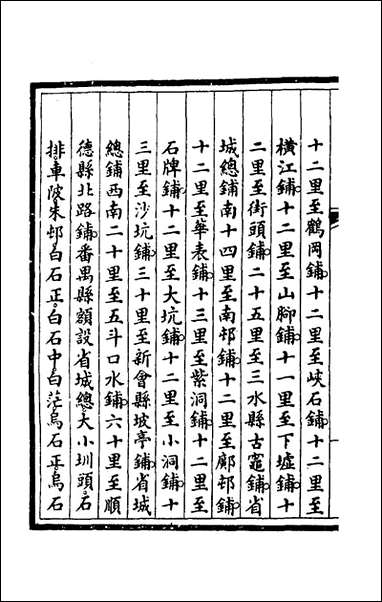 十二里至鶴岡鋪十二里至峽石鋪十二里至
橫江鋪十二里至山腳鋪十一里至下墟鋪十
二里至街頭鋪二十五里至三水縣古竈鋪省
城總鋪南十四里至南邨鋪十二里至鄺邨鋪
十二里至華表鋪十三里至紫洞鋪十二里至
石牌鋪十二里至大坑鋪十二里至小洞鋪十
三里至沙坑鋪三十里至新會縣坡亭鋪省城
總鋪西南二十里至五斗口水鋪六十里至順
德縣北路鋪番禺縣額設省城總大小圳頭石
排車陂朱邨白石正白石中白茫烏石正烏石